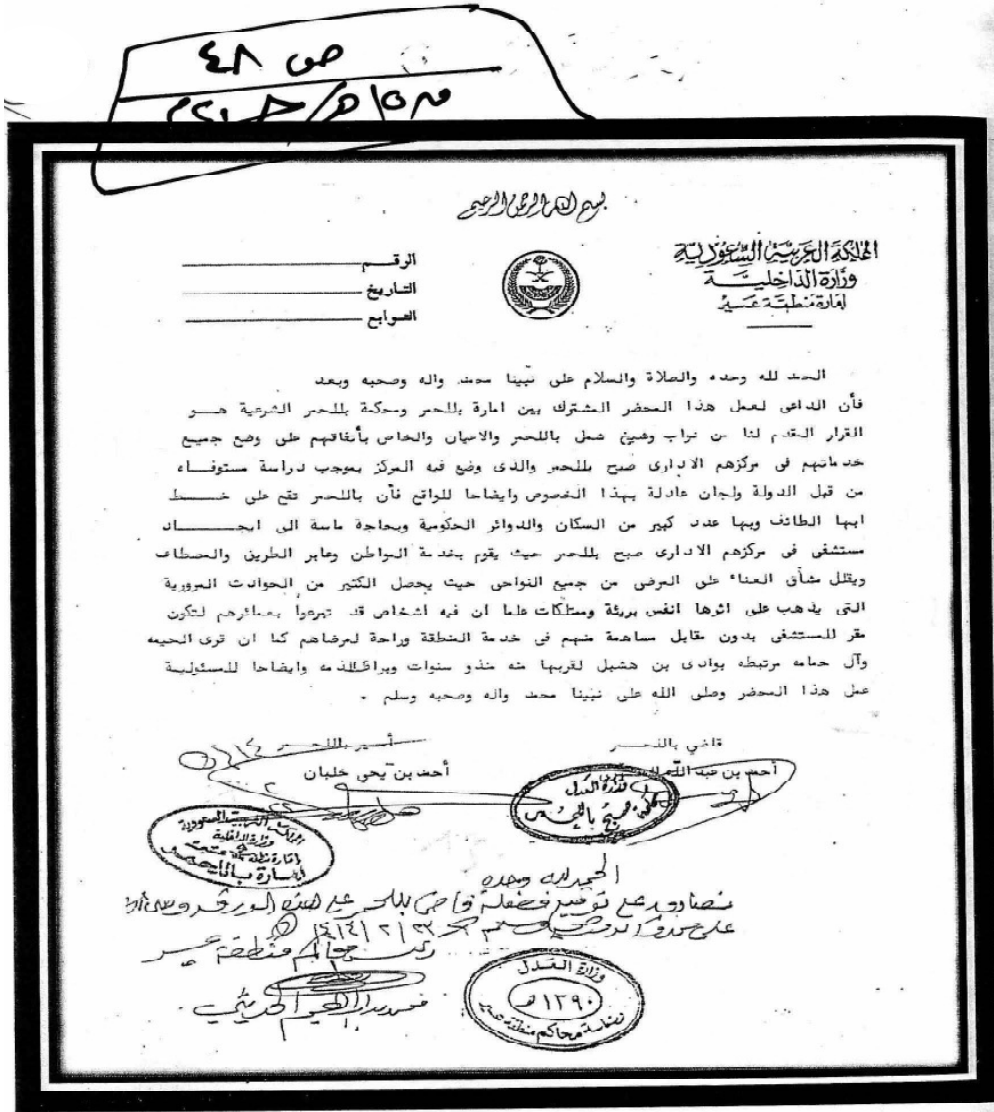 ص ٤٨
بسم الله الرحمن الرحيم
المملكة العربية السعودية
وزارة الداخلية
امارة منطقة عسير
الرقم
التاريخ
التوابع
الحمد لله وحده والصلاة والسلام على نبينا محمد واله وصحبه وبعد
فأن الداعى لعمل هذا المحضر المشترك بين امارة بللحمر ومحكمة بللحمر الشرعية هو
القرار المقدم لنا من نواب وشيخ شمل باللحمر والاعيان والخاص بأتفاقهم على وضع جميع
خدماتهم فى مركزهم الادارى صبح بللحمر والذى وضع فيه المركز بموجب دراسة مستوفاه
من قبل الدولة ولجان عادلة بهذا الخصوص وايضاحا للواقع فأن باللحمر تقع على خط
ابها الطائف وبها عدد كبير من السكان والدوائر الحكومية وبحاجة ماسة الى ايجاد
مستشفى فى مركزهم الادارى صبح بللحمر حيث يقوم بخدمة المواطن وعابر الطريق والمصطاف
ويقلل مشأق العناء على المرضى من جميع النواحى حيث يحصل الكثير من الحوادث المرورية
التى يذهب على اثرها انفس بريئة وممتلكات علما ان فيه اشخاص قد تبرعوا بعمائرهم لتكون
مقر للمستشفى بدون مقابل مساهمة منهم فى خدمة المنطقة وراحة لمرضاهم كما ان قرى الحيمه
وآل حمامه مرتبطه بوادى بن هشبل لقربها منه منذو سنوات وبراةللذمه وايضاحا للمسئولية
عمل هذا المحضر وصلى الله على نبينا محمد واله وصحبه وسلم .
قاضي باللحمر
أمير باللحمر
أحمد بن عبد الله
أحمد بن يحى حلبان
وزارة العدل
محكمة صبح باللحمر
المملكة العربية السعودية
وزارة الداخلية
امارة منطقة عسير
امارة باللحمر
الحمد لله وحده
نصادق على توقيع فضيلة قاضي بللحمر على هذه الورقة
رئيس محاكم منطقة عسير
وزارة العدل
١٣٩٠ هـ
رئاسة محاكم منطقة عسير